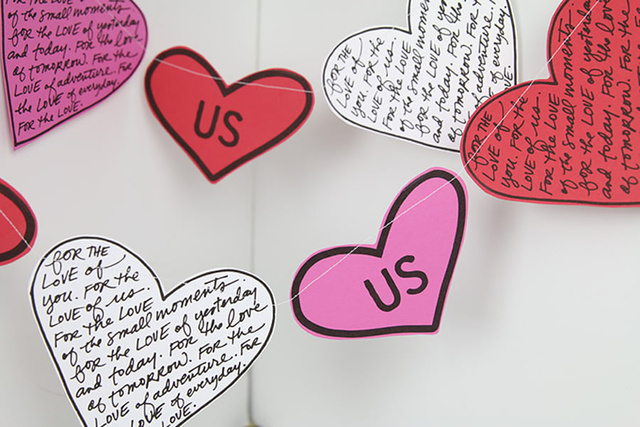 of the small moments
for the LOVE of yesterday
and today. FOR the love
of tomorrow. FOR the
LOVE of adventure. FOR
the LOVE of everyday.
FOR the LOVE.
US
FOR THE
LOVE of
you. FOR the
LOVE of us.
FOR the LOVE
of the small moments
for the LOVE of yesterday
and today. FOR the
of tomorrow.
FOR THE
LOVE of
you. FOR the
LOVE of us.
FOR the LOVE
of the small moments
for the LOVE of
and today. FOR
of tomorrow.
US
FOR THE
LOVE of
you. FOR the
LOVE of us.
FOR the LOVE
of the small moments
for the LOVE of yesterday
and today. FOR the love
of tomorrow. FOR the
LOVE of adventure. FOR
the LOVE of everyday.
LOVE.